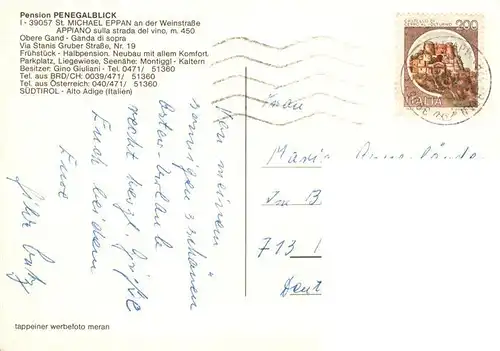 Pension PENEGALBLICK
I - 39057 St. MICHAEL EPPAN an der Weinstraße
APPIANO sulla strada del vino, m. 450
Obere Gand - Ganda di sopra
Via Stanis Gruber Straße, Nr. 19
Frühstück - Halbpension. Neubau mit allem Komfort.
Parkplatz, Liegewiese, Seenähe: Montiggl - Kaltern
Besitzer: Gino Giuliani - Tel. 0471/ 51360
Tel. aus BRD/CH: 0039/471/ 51360
Tel. aus Österreich: 040/471/ 51360
SÜDTIROL - Alto Adige (Italien)
Von meinem
sonnigen u. schönen
Urlaub
recht herzl. Grüße
Euch beiden
Eure
tappeiner werbefoto meran
200
ITALIA
Frau
Maria
Im B
713
Deut